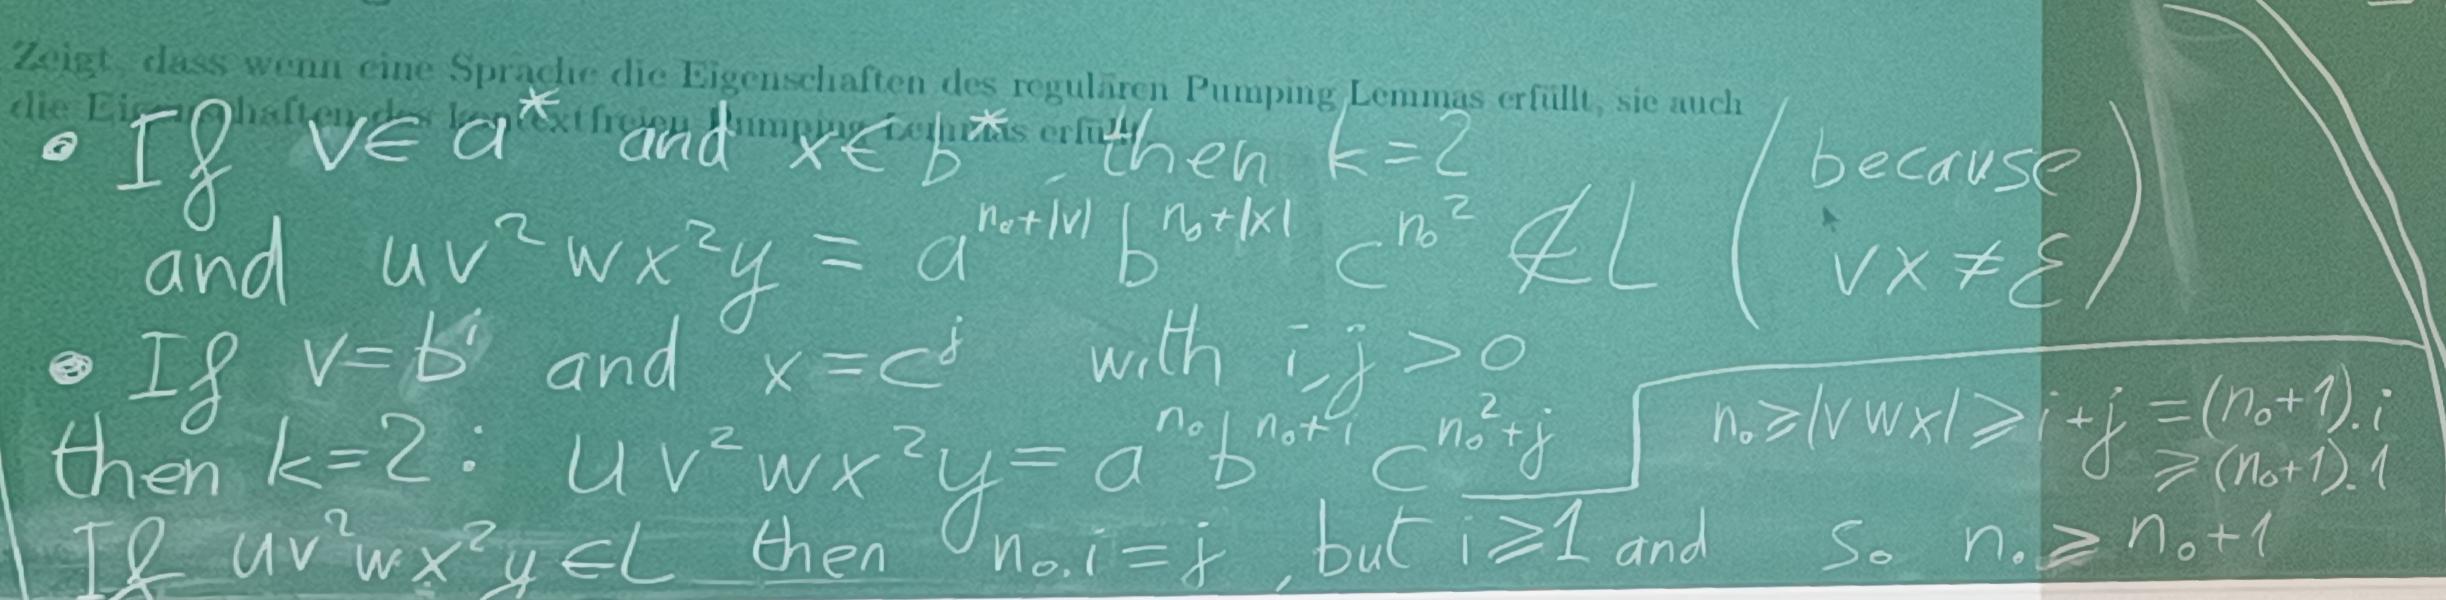 Zeigt, dass wenn eine Sprache die Eigenschaften des regulären Pumping Lemmas erfüllt, sie auch
die Eigenschaften des kontextfreien Pumping Lemmas erfüllt
• If v∈a* and x∈b* , then k=2 (because
and uv²wx²y = a^{n₀+|v|} b^{n₀+|x|} c^{n₀²} ∉ L vx≠ε)
• If v=b^i and x=c^j with i,j>0
then k=2: uv²wx²y = a^{n₀} b^{n₀+i} c^{n₀²+j}
n₀⩾|vwx|⩾i+j =(n₀+1).i
⩾(n₀+1).1
If uv²wx²y∈L then n₀.i=j , but i⩾1 and So n₀⩾n₀+1